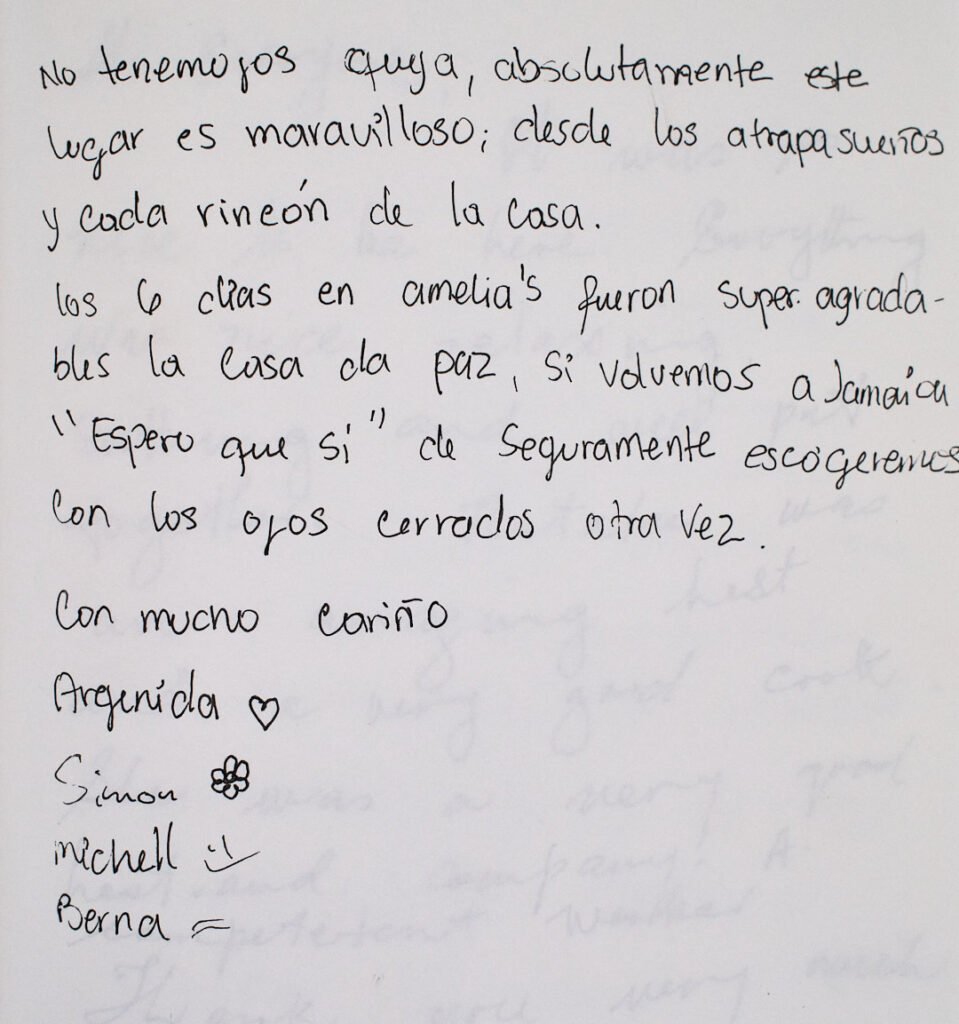 No tenemojos quya, absolutamente este
lugar es maravilloso; desde los atrapasueños
y cada rincón de la casa.
los 6 dias en amelia's fueron super agrada-
bles la casa da paz, si volvemos a Jamaica
"Espero que si" de seguramente escogeremos
con los ojos cerrados otra vez.
Con mucho cariño
Argenida
Simon
michell :)
Berna =